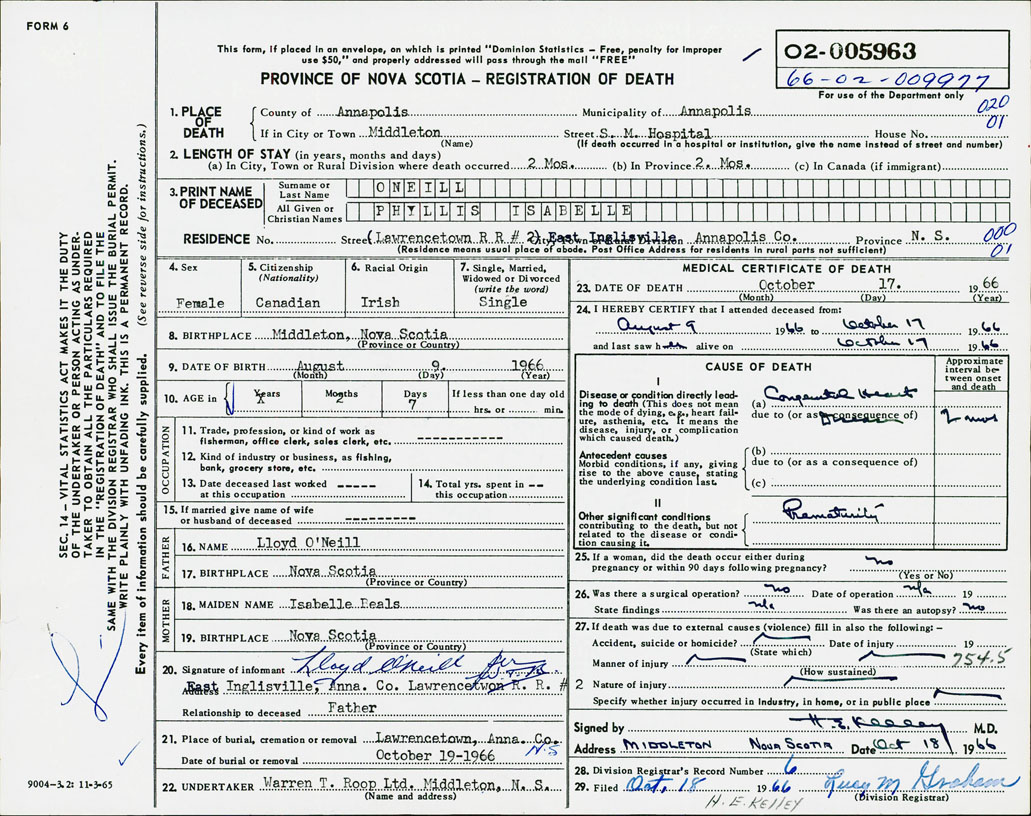 FORM 6
This form, if placed in an envelope, on which is printed "Dominion Statistics – Free, penalty for improper
use $50," and properly addressed will pass through the mail "FREE"
PROVINCE OF NOVA SCOTIA – REGISTRATION OF DEATH
02-005963
66-02-009977
For use of the Department only
020
01
1. PLACE OF DEATH
County of Annapolis Municipality of Annapolis
If in City or Town Middleton Street S. M. Hospital House No.
(Name) (If death occurred in a hospital or institution, give the name instead of street and number)
2. LENGTH OF STAY (in years, months and days)
(a) In City, Town or Rural Division where death occurred 2 Mos. (b) In Province 2. Mos. (c) In Canada (if immigrant)
3. PRINT NAME OF DECEASED
Surname or Last Name ONEILL
All Given or Christian Names PHYLLIS ISABELLE
RESIDENCE No. Street (Lawrencetown R R # 2) City, Town or Rural Division East Inglisville Annapolis Co. Province N. S.
(Residence means usual place of abode. Post Office Address for residents in rural parts not sufficient)
000
01
4. Sex
Female
5. Citizenship
(Nationality)
Canadian
6. Racial Origin
Irish
7. Single, Married,
Widowed or Divorced
(write the word)
Single
8. BIRTHPLACE Middleton, Nova Scotia
(Province or Country)
9. DATE OF BIRTH August 9. 1966
(Month) (Day) (Year)
10. AGE in Years X Months 2 Days 7 If less than one day old
hrs. or min.
OCCUPATION
11. Trade, profession, or kind of work as
fisherman, office clerk, sales clerk, etc. ------------
12. Kind of industry or business, as fishing,
bank, grocery store, etc.
13. Date deceased last worked -----
at this occupation
14. Total yrs. spent in --
this occupation
15. If married give name of wife
or husband of deceased ---------
FATHER
16. NAME Lloyd O'Neill
17. BIRTHPLACE Nova Scotia
(Province or Country)
MOTHER
18. MAIDEN NAME Isabelle Beals
19. BIRTHPLACE Nova Scotia
(Province or Country)
20. Signature of informant Lloyd O'Neill
Address East Inglisville, Anna. Co. Lawrencetwon R. R. # 2
Relationship to deceased Father
21. Place of burial, cremation or removal Lawrencetown, Anna. Co.
N.S
Date of burial or removal October 19-1966
22. UNDERTAKER Warren T. Roop Ltd. Middleton, N. S.
(Name and address)
MEDICAL CERTIFICATE OF DEATH
23. DATE OF DEATH October 17. 1966
(Month) (Day) (Year)
24. I HEREBY CERTIFY that I attended deceased from:
August 9 1966 to October 17 1966
and last saw h alive on October 17 1966
CAUSE OF DEATH
Approximate interval between onset and death
I
Disease or condition directly leading to death (This does not mean the mode of dying, e.g., heart failure, asthenia, etc. It means the disease, injury, or complication which caused death.)
(a) Congenital Heart
due to (or as a consequence of) Disease
2 mos
Antecedent causes
Morbid conditions, if any, giving rise to the above cause, stating the underlying condition last.
(b)
due to (or as a consequence of)
(c)
II
Other significant conditions
contributing to the death, but not related to the disease or condition causing it.
Prematurity
25. If a woman, did the death occur either during
pregnancy or within 90 days following pregnancy? no
(Yes or No)
26. Was there a surgical operation? no Date of operation n/a 19
State findings n/a Was there an autopsy? no
27. If death was due to external causes (violence) fill in also the following: –
Accident, suicide or homicide? Date of injury 19
(State which)
754.5
Manner of injury
(How sustained)
Nature of injury
Specify whether injury occurred in Industry, in home, or in public place
Signed by H. E. Kelley M.D.
Address MIDDLETON NOVA SCOTIA Date Oct 18 1966
28. Division Registrar's Record Number 6
29. Filed Oct. 18 1966 Lucy M Graham
(Division Registrar)
H. E. KELLEY
SEC. 14 – VITAL STATISTICS ACT MAKES IT THE DUTY
OF THE UNDERTAKER OR PERSON ACTING AS UNDER-
TAKER TO OBTAIN ALL THE PARTICULARS REQUIRED
IN THE "REGISTRATION OF DEATH" AND TO FILE THE
SAME WITH THE DIVISION REGISTRAR WHO SHALL ISSUE THE BURIAL PERMIT.
WRITE PLAINLY WITH UNFADING INK. THIS IS A PERMANENT RECORD.
Every item of information should be carefully supplied. (See reverse side for instructions.)
9004–3.2: 11-3-65